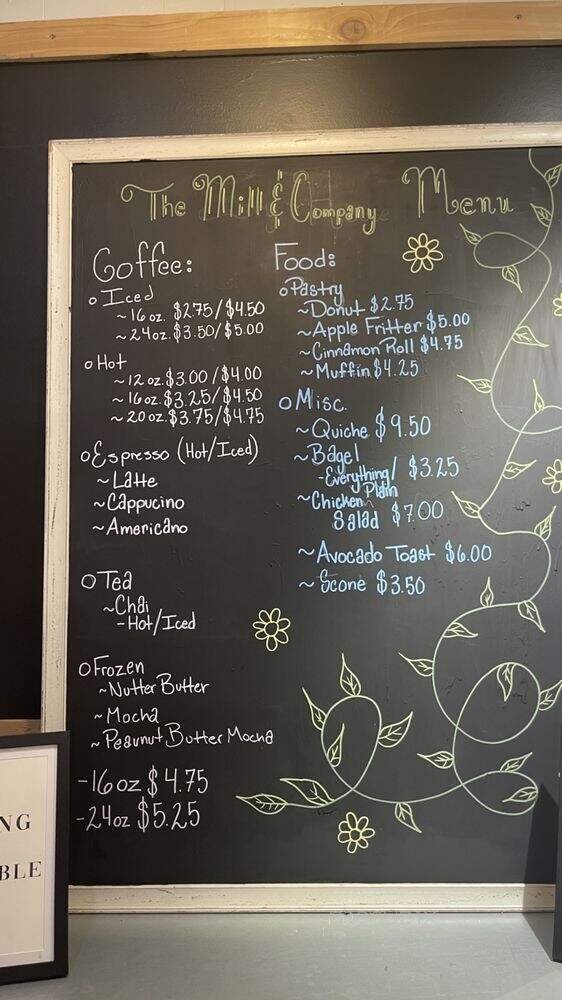 The Mill & Company Menu
Coffee:
o Iced
~16 oz. $2.75/$4.50
~24oz. $3.50/$5.00
o Hot
~12 oz. $3.00/$4.00
~16 oz. $3.25/$4.50
~20 oz. $3.75/$4.75
o Espresso (Hot/Iced)
~Latte
~Cappucino
~Americano
o Tea
~Chai
-Hot/Iced
o Frozen
~Nutter Butter
~Mocha
~Peaunut Butter Mocha
-16 oz $4.75
-24oz $5.25
Food:
o Pastry
~Donut $2.75
~Apple Fritter $5.00
~Cinnamon Roll $4.75
~Muffin $4.25
o Misc.
~Quiche $9.50
~Bagel
-Everything/ $3.25
Plain
~Chicken
Salad $7.00
~Avocado Toast $6.00
~Scone $3.50
NG
BLE